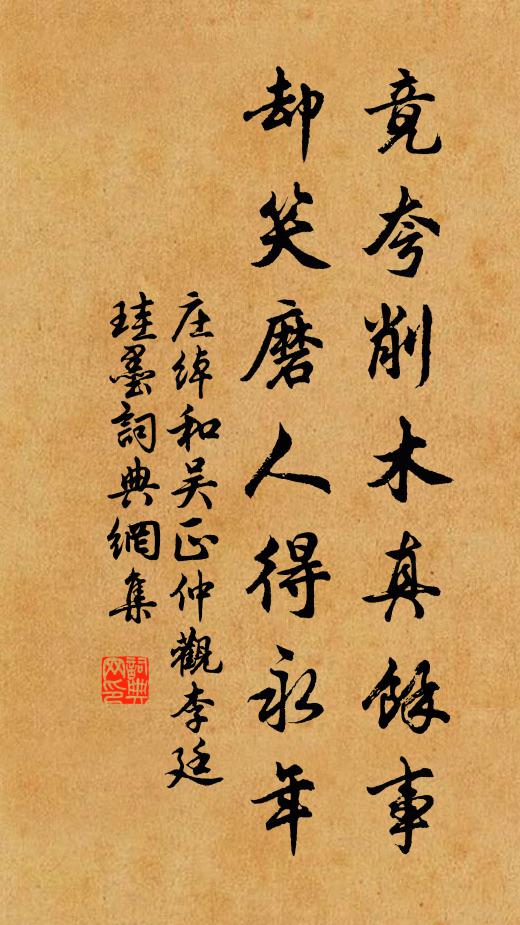 竟夸削木真餘事
却笑磨人得永年
庄绰和吴正仲觀李廷
珪墨詞典網集
詞典网印